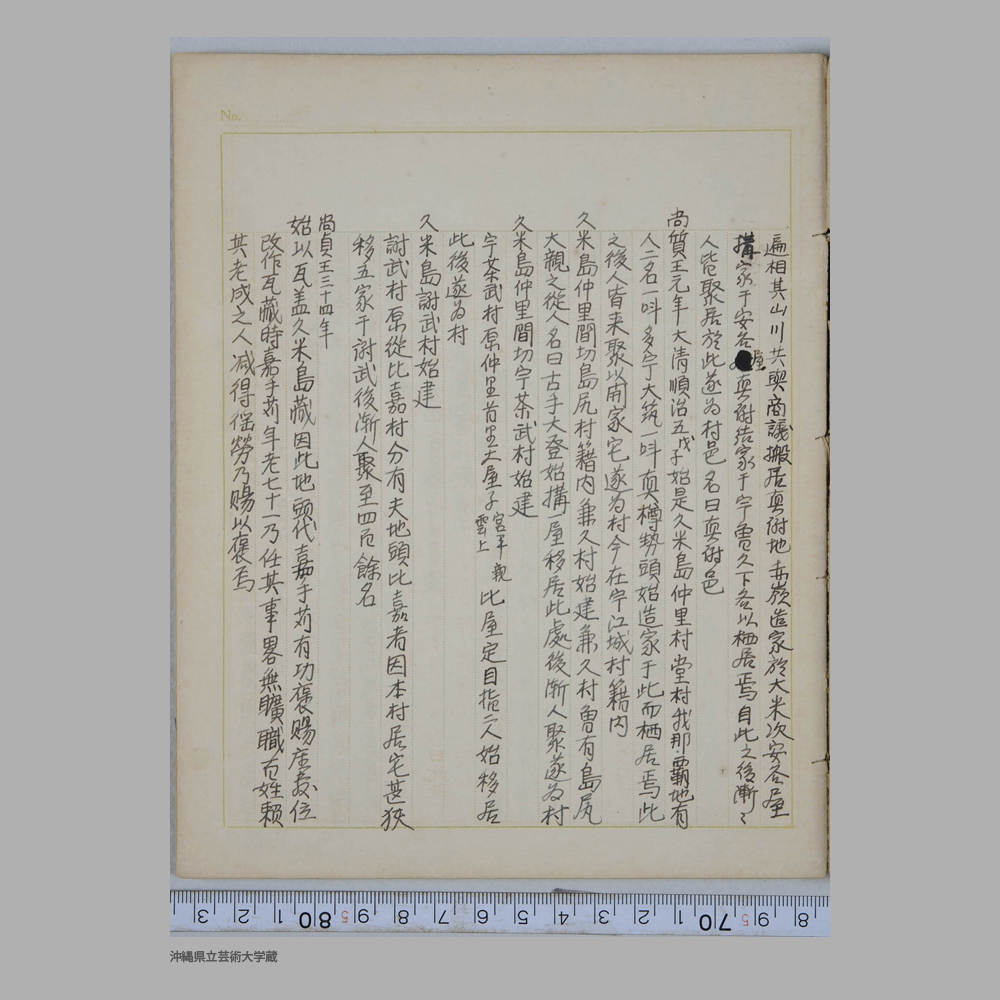 No.
遍相其山川共與商議搬居真謝地赤嶺造家於大米次安谷屋
構家于安谷屋真謝結家于宇曽久下各以栖居焉自此之後漸〻
人皆聚居於此遂為村邑名曰真謝邑
尚質王元年大清順治五戊子始是久米島仲里村堂村我那覇地有
人二名一呌多宁大筑一呌真樽勢頭始造家于此而栖居焉此
之後人皆来聚以開家宅遂為村今在宇江城村籍内
久米島仲里間切島尻村籍内兼久村始建兼久村曽有島尻
大親之従人名曰古手大登始搆一屋移居此處後漸人聚遂為村
久米島仲里間切宇茶武村始建
宇茶武村原仲里首里大屋子宮平親雲上比屋定目指二人始移居
此後遂為村
久米島謝武村始建
謝武村原従比嘉村分有夫地頭比嘉者因本村居宅甚狹
移五家于謝武後漸人聚至四百餘名
尚貞王三十四年
始以瓦盖久米島藏因此地頭代嘉手苅有功褒賜座敷位
改作瓦藏時嘉手苅年老七十一乃任其事畧無曠職百姓賴
其老成之人減得徭勞乃賜以褒焉
8 9 5 70 1 2 3 4 5 6 7 8 9 5 80 1 2 3
沖縄県立芸術大学蔵